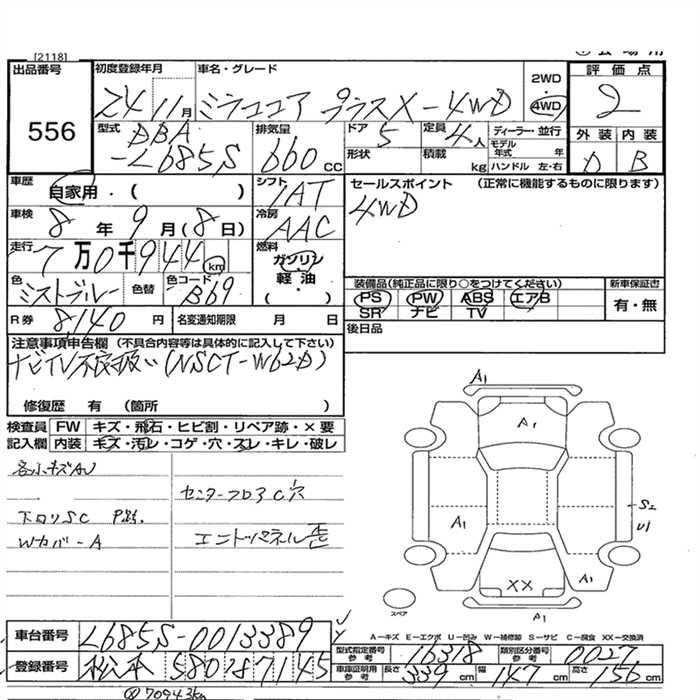 [2118]
出品番号
556
初度登録年月
24 11月
車名・グレード
ミラココア プラスX-4WD
2WD
4WD
評価点
2
外装 内装
D B
型式
DBA
-L685S
排気量
660 cc
ドア
5
定員
4人
形状
積載
kg
ディーラー・並行
モデル年式 年
ハンドル 左・右
車歴
自家用・( )
シフト
IAT
セールスポイント (正常に機能するものに限ります)
4WD
車検
8年 9月(8日)
冷房
AAC
走行
7万0千944km
燃料
ガソリン
軽油
・( )
色
ミストブルー
色替
色コード
B69
装備品(純正品に限り○をつけてください)
PS PW ABS エアB
SR ナビ TV
新車保証書
有・無
R券
8,140円
名変通知期限 月 日
後日品
注意事項申告欄 (不具合内容等は具体的に記入して下さい)
ナビTV不良扱い(NSCT-W62D)
修復歴 有 (箇所 )
検査員記入欄
FW キズ・飛石・ヒビ割・リペア跡・×要
内装 キズ・汚レ・コゲ・穴・スレ・キレ・破レ
各小キズAU
下回りSC
Wカバ-A
センターフロアC穴
エンドパネル歪
A1
A1
A1
S2
U1
A1
XX
A1
スペア
A-キズ E-エクボ U-凹み W-補修跡 S-サビ C-腐食 XX-交換済
車台番号
L685S-0013389
登録番号
松本 580 7145
型式指定番号
参考
16318
類別区分番号
参考
0027
車庫証明用
参考
長さ 339cm
幅 147cm
高さ 156cm